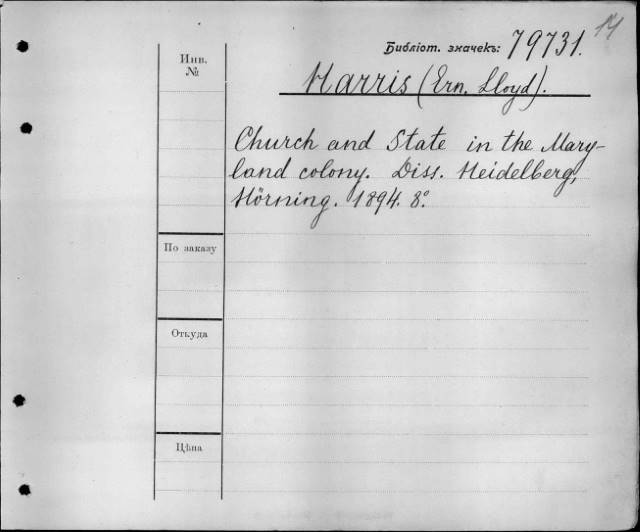 14
Библіот. значекъ: 79731.
Инв.
№
Harris (Ern. Lloyd).
Church and State in the Mary-
land colony. Diss. Heidelberg,
Hörning. 1894. 8°.
По заказу
Откуда
Цѣна